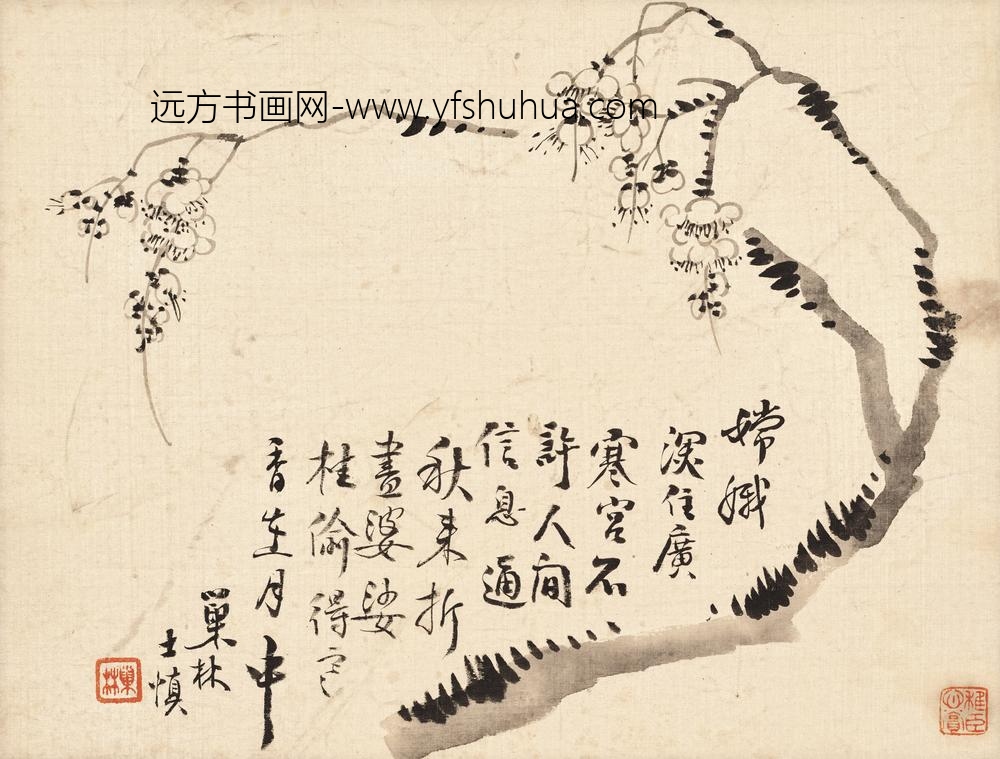 远方书画网-www.yfshuhua.com
嫦娥
深住廣
寒宮不
許人間
信息通
秋来折
盡婆娑
桂偷得
香在月中
巢林
士慎
巢林